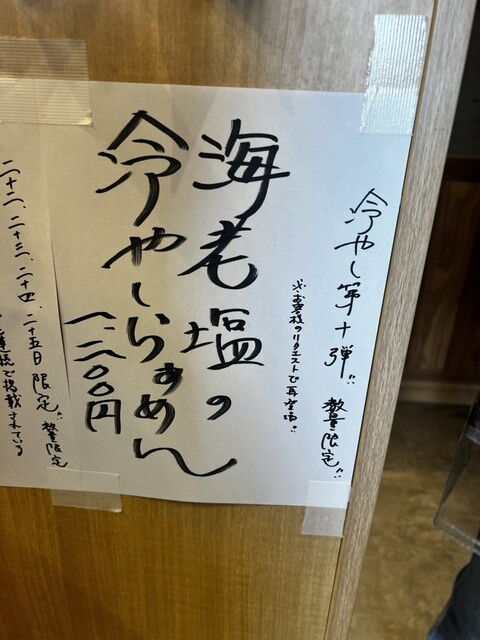 冷やし第十弾!! 数量限定!!
※お客様のリクエストで再登場!!
海老塩の
冷やしらぁめん
一、二〇〇円
二十二、二十三、二十四、二十五日限定!! 数量限定
で掲載されている